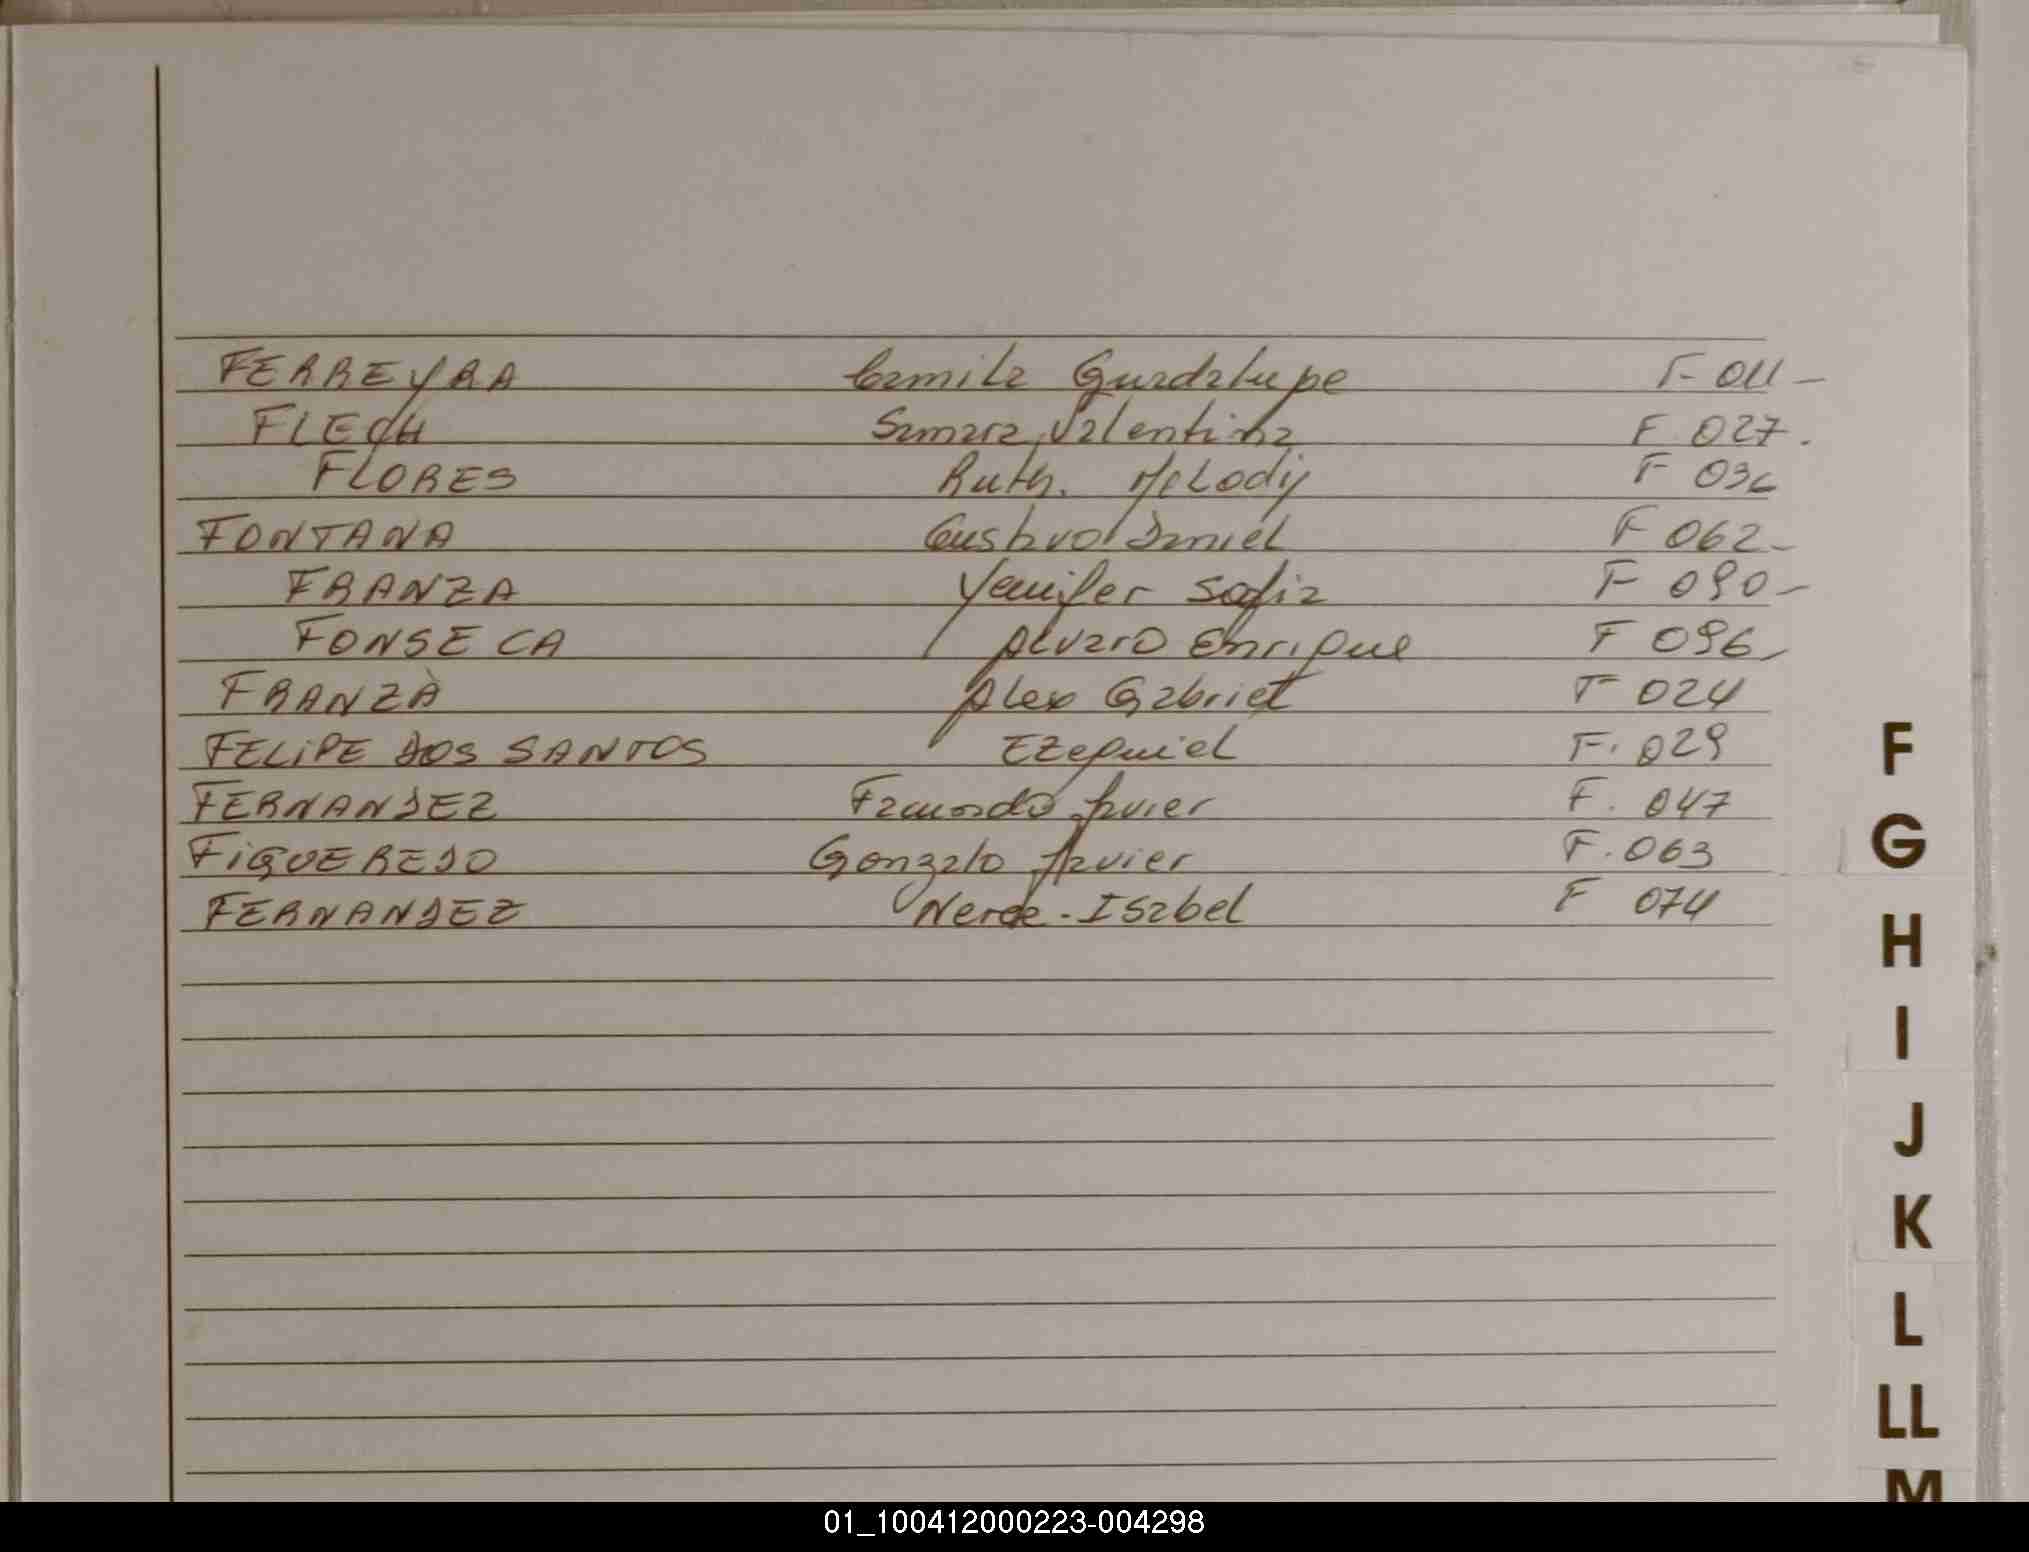 FERREYRA Camila Guadalupe F 011-
FLECH Samara Valentina F 027.
FLORES Ruth. Melody F 036
FONTANA Gustavo Daniel F 062-
FRANZA Yenifer Sofia F 090-
FONSECA Alvaro Enrique F 096-
FRANZA Alex Gabriel F 024
FELIPE DOS SANTOS Ezequiel F. 029
FERNANDEZ Facundo Javier F. 047
FIGUEREDO Gonzalo Javier F. 063
FERNANDEZ Isabel F 074
F
G
H
I
J
K
L
LL
M
01_100412000223-004298